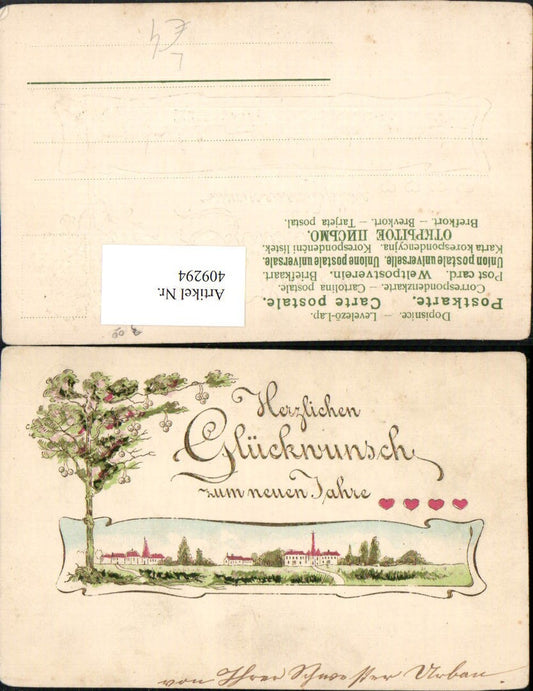 Dopisnice. — Levelező-Lap.
Postkarte. Carte postale.
Correspondenzkarte. — Cartolina postale.
Post card. Weltpostverein. Briefkaart.
Union postale universelle. Unione postale universale.
Karta korespondencyjna. Korespondenční lístek.
ОТКРЫТОЕ ПИСЬМО.
Brefkort. — Brevkort. — Tarjeta postal.
Artikel Nr.
409294
Herzlichen
Glückwunsch
zum neuen Jahre
von Ihrer Schwester Urban.